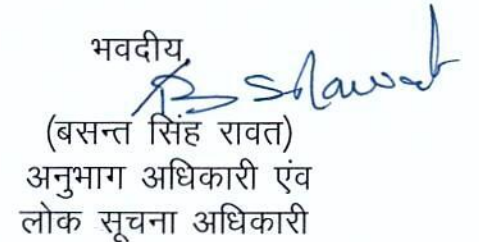 भवदीय
B S Rawat
(बसन्त सिंह रावत)
अनुभाग अधिकारी एंव
लोक सूचना अधिकारी